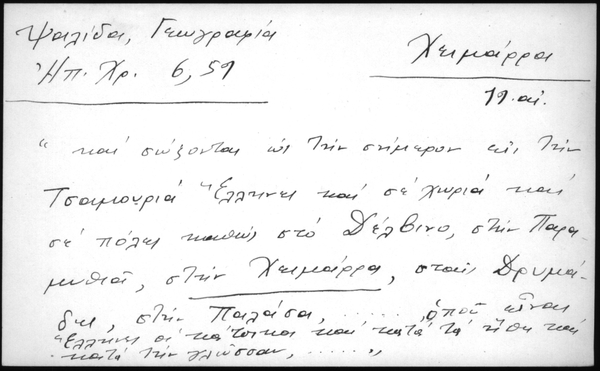 Ψαλίδα, Γεωγραφία
Ἠπ. Χρ. 6, 59
Χειμάρρα
19. αἰ.
“ καί σώζονται ὡς τήν σήμερον εἰς τήν
Τσαμουριά Ἕλληνες καί σέ χωριά καί
σέ πόλεις καθώς στό Δέλβινο, στήν Παρα-
μυθιά, στήν Χειμάρρα, στούς Δρυμά-
δες, στήν Παλάσα, ...... , ὁποῦ εἶναι
Ἕλληνες οἱ κάτοικοι καί κατά τά ἤθη καί
κατά τήν γλῶσσαν, ...... ”